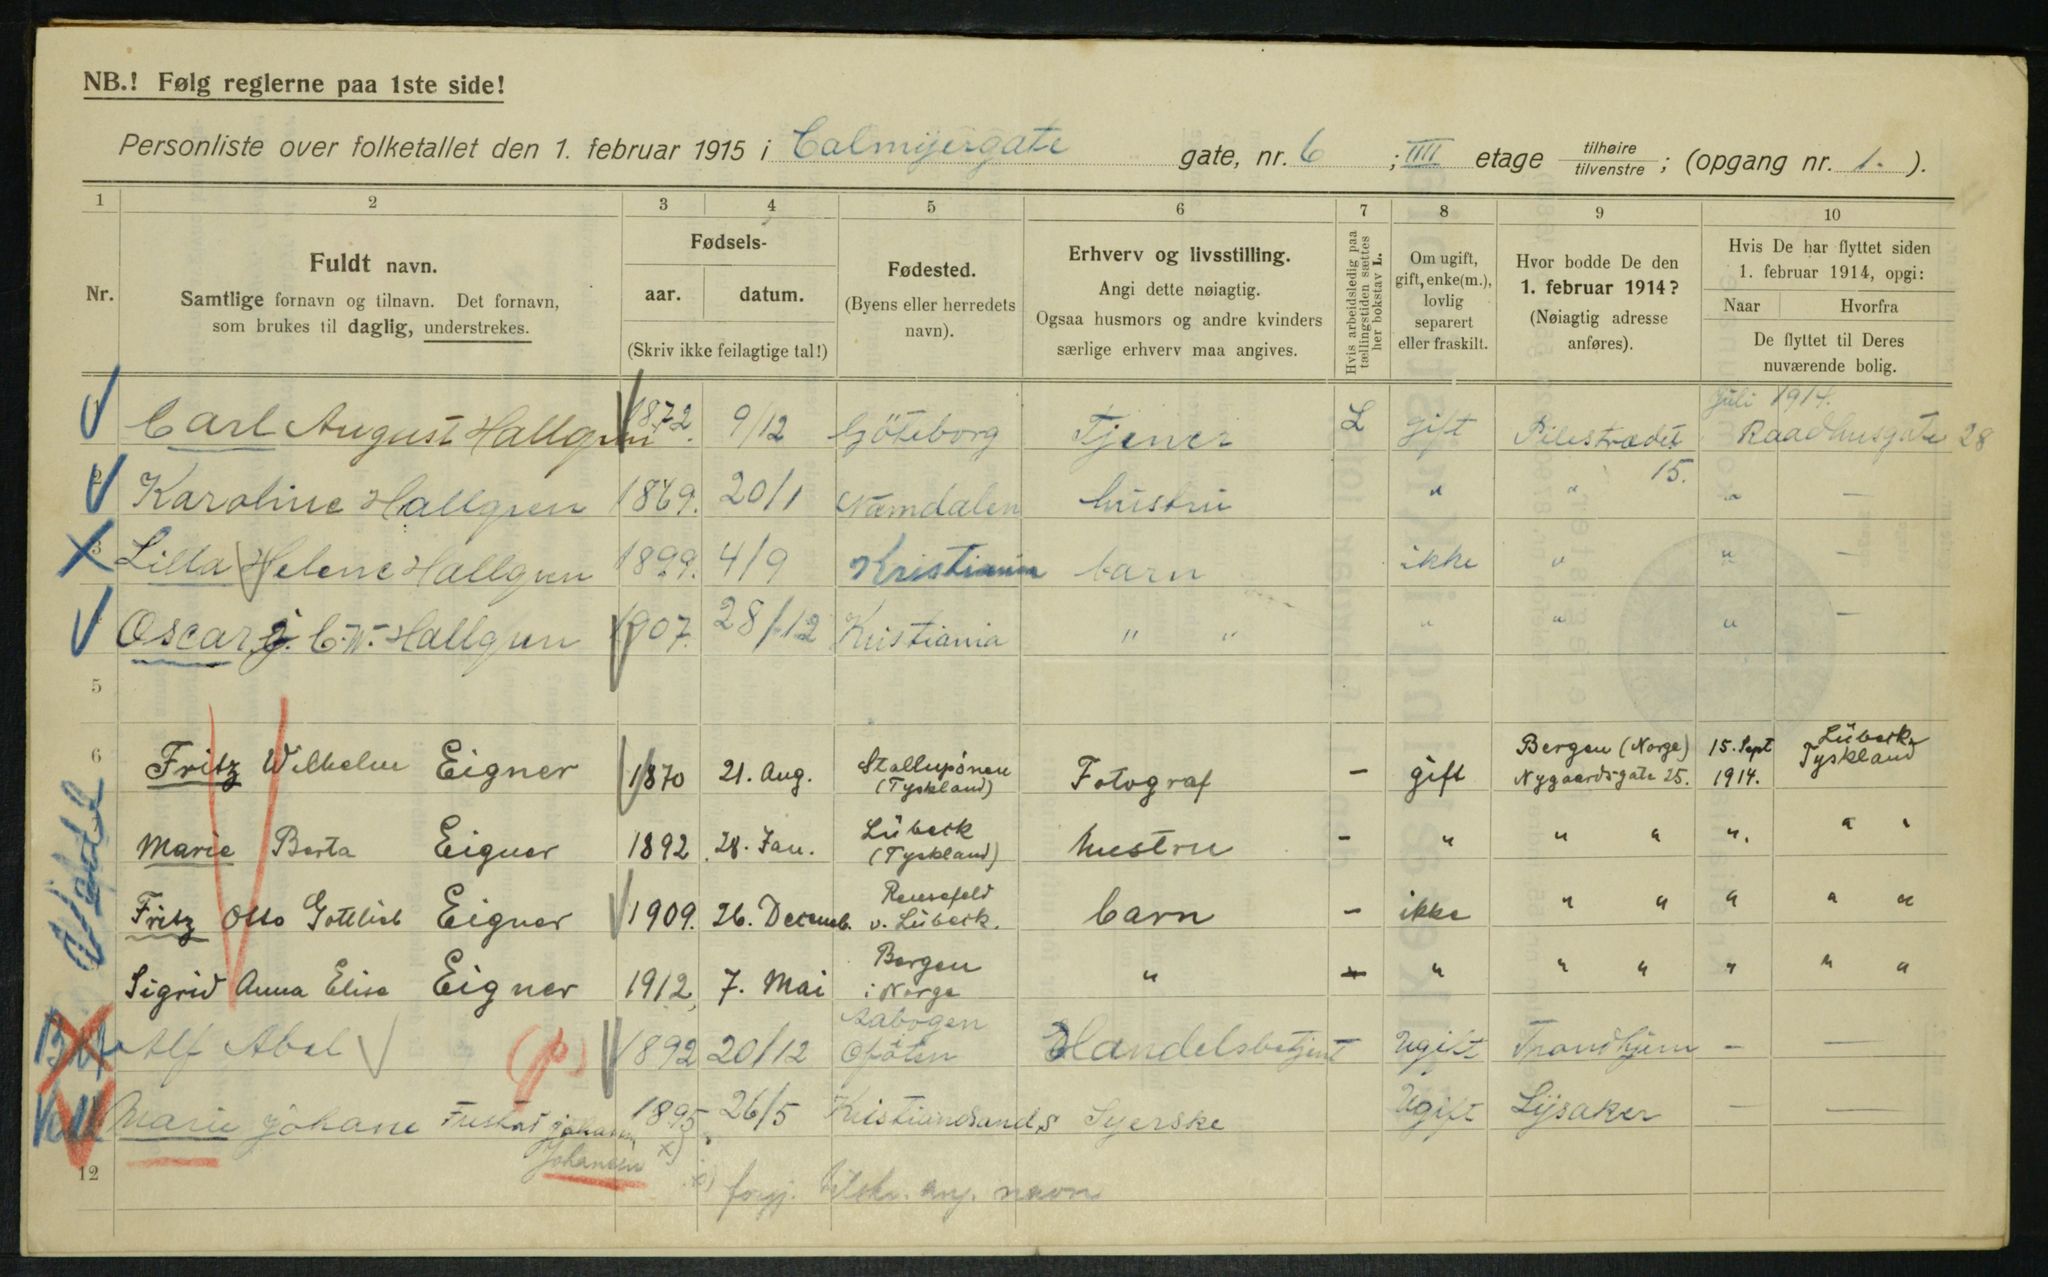 NB.! Følg reglerne paa 1ste side!
Personliste over folketallet den 1. februar 1915 i Calmijergate gate, nr. 6 ; IIII etage tilhøire tilvenstre ; (opgang nr. 1. ).
1 2 3 4 5 6 7 8 9 10
Nr.
Fuldt navn.
Samtlige fornavn og tilnavn. Det fornavn,
som brukes til daglig, understrekes.
Fødsels-
aar. datum.
(Skriv ikke feilagtige tal!)
Fødested.
(Byens eller herredets
navn).
Erhverv og livsstilling.
Angi dette nøiagtig.
Ogsaa husmors og andre kvinders
særlige erhverv maa angives.
Hvis arbeidsledig paa
tællingstiden sættes
her bokstav L.
Om ugift,
gift, enke(m.),
lovlig
separert
eller fraskilt.
Hvor bodde De den
1. februar 1914?
(Nøiagtig adresse
anføres).
Hvis De har flyttet siden
1. februar 1914, opgi:
Naar Hvorfra
De flyttet til Deres
nuværende bolig.
1 Carl August Hallgren 1872. 9/12 Göteborg Tjener L gift Pilestrædet 15. Juli 1914. Raadhusgate 28
2 Karoline Hallgren 1869. 20/1 Namdalen hustru " " " —
3 Lilla Helene Hallgren 1899. 4/9 Kristiania barn ikke " " —
Oscar J. C. W. Hallgren 1907. 28/12 Kristiania " " " " " —
5
6 Fritz Wilhelm Eigner 1870 21. Aug. Stallupönen (Tyskland) Fotograf – gift Bergen (Norge) Nygaardsgate 25. 15. Sept 1914. Lübeck Tyskland
Marie Berta Eigner 1892 28. Jan. Lübeck (Tyskland) hustru – " " " " " "
Fritz Otto Gottlieb Eigner 1909. 26. Decemb. Rensefeld v. Lübeck. barn – ikke " " " " "
Sigrid Anna Elise Eigner 1912 7. Mai Bergen i Norge " – " " " " " "
Alf Abel (p) 1892 20/12 Aabogen Handelsbetjent Ugift Trondhjem — —
Marie Johane Johansen 1895 x) 26/5 Kristiansand S Syerske Ugift Lysaker — —
Johansen
12 x) navn